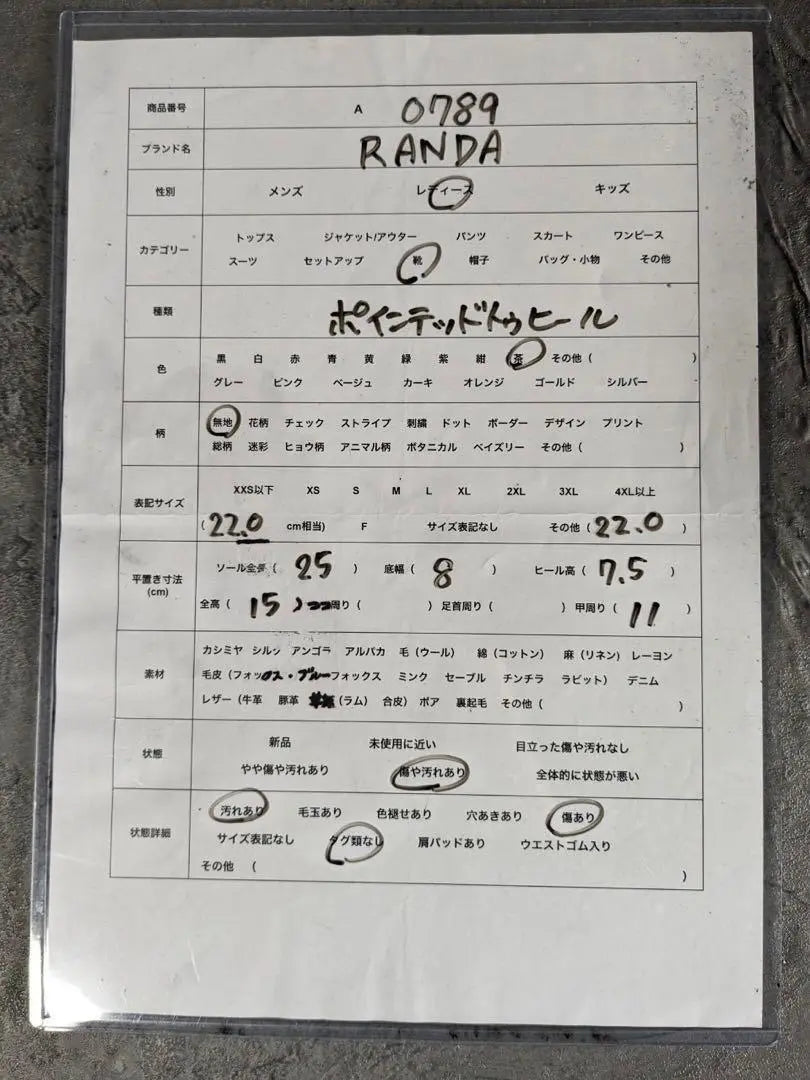 商品番号 A 0789
ブランド名 RANDA
性別 メンズ レディース キッズ
カテゴリー トップス ジャケット/アウター パンツ スカート ワンピース
スーツ セットアップ 靴 帽子 バッグ・小物 その他
種類 ポインテッドトゥヒール
色 黒 白 赤 青 黄 緑 紫 紺 茶 その他 ( )
グレー ピンク ベージュ カーキ オレンジ ゴールド シルバー
柄 無地 花柄 チェック ストライプ 刺繍 ドット ボーダー デザイン プリント
総柄 迷彩 ヒョウ柄 アニマル柄 ボタニカル ペイズリー その他 ( )
表記サイズ XXS以下 XS S M L XL 2XL 3XL 4XL以上
( 22.0 cm相当) F サイズ表記なし その他 ( 22.0 )
平置き寸法 (cm) ソール全長 ( 25 ) 底幅 ( 8 ) ヒール高 ( 7.5 )
全高 ( 15 ) 周り ( ) 足首周り ( ) 甲周り ( 11 )
素材 カシミヤ シルク アンゴラ アルパカ 毛 (ウール) 綿 (コットン) 麻 (リネン) レーヨン
毛皮 (フォックス・ブルーフォックス ミンク セーブル チンチラ ラビット) デニム
レザー (牛革 豚革 (ラム) 合皮) ボア 裏起毛 その他 ( )
状態 新品 未使用に近い 目立った傷や汚れなし
やや傷や汚れあり 傷や汚れあり 全体的に状態が悪い
状態詳細 汚れあり 毛玉あり 色褪せあり 穴あきあり 傷あり
サイズ表記なし タグ類なし 肩パッドあり ウエストゴム入り
その他 ( )